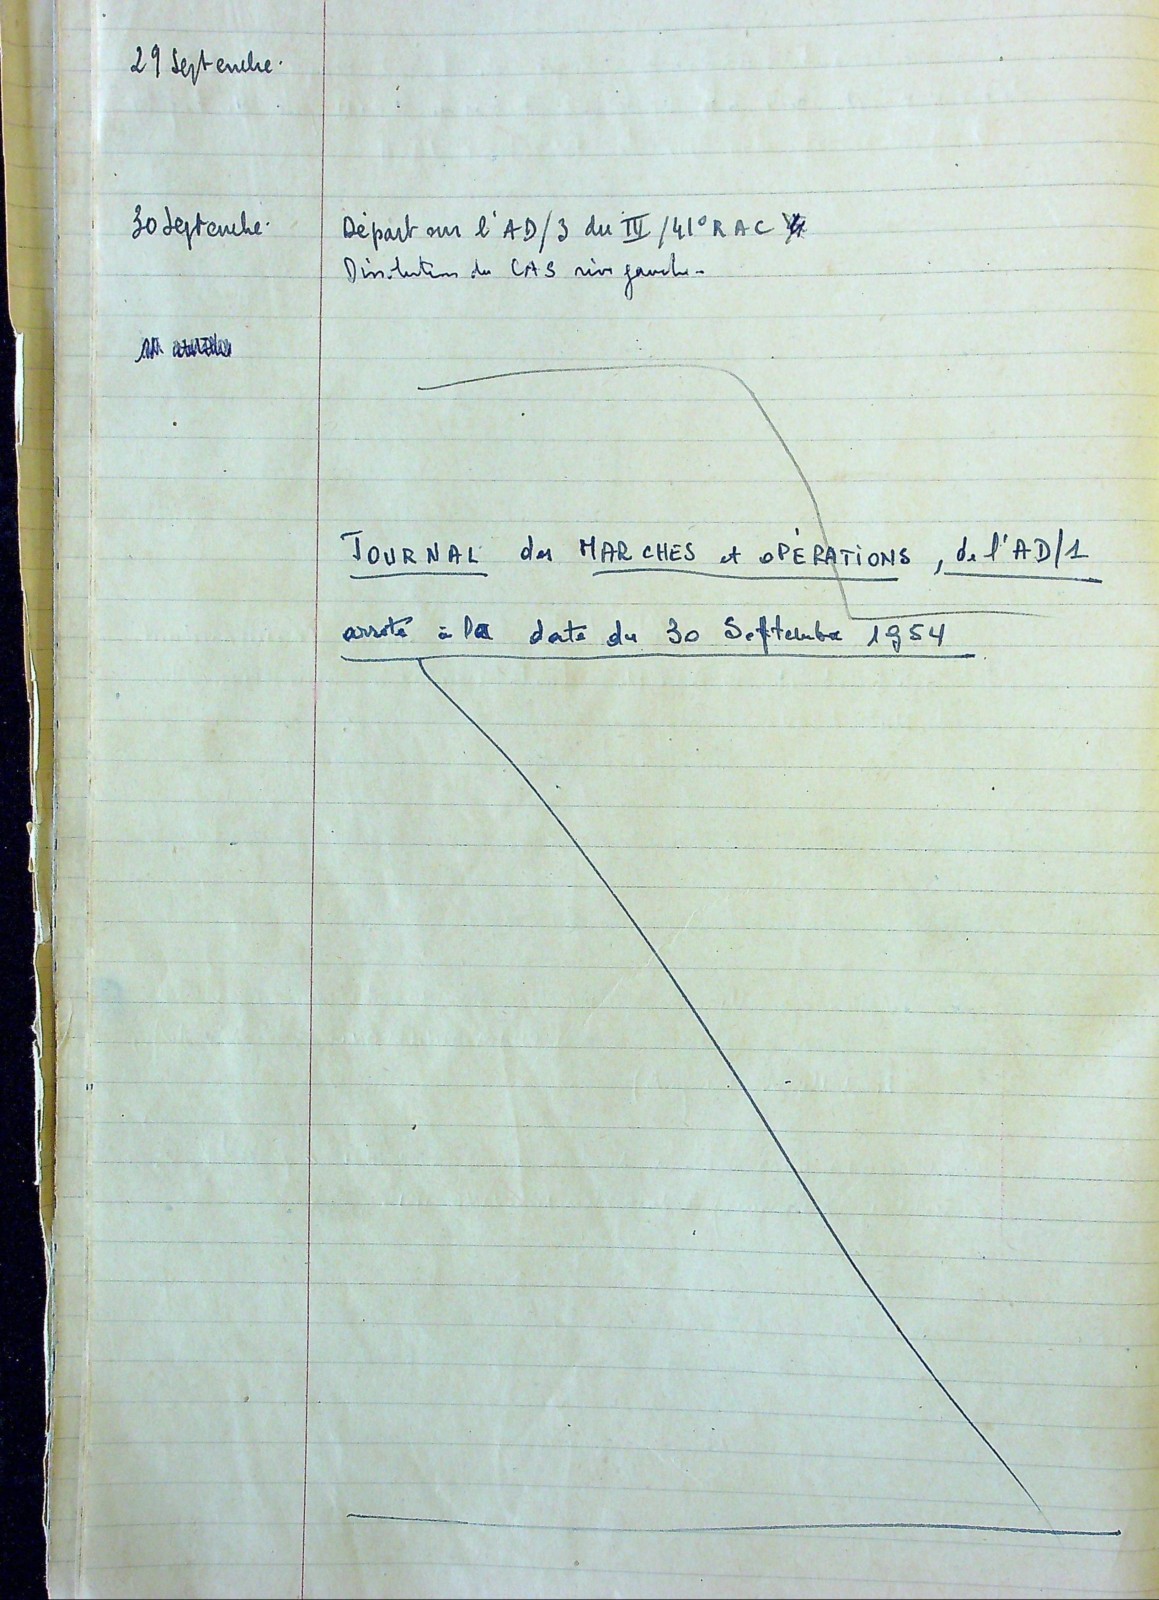 29 Septembre.
30 Septembre. Départ sur l'AD/3 du IV/41° RAC
Dissolution du CAS rive gauche.
JOURNAL des MARCHES et OPÉRATIONS, de l'AD/1
arrêté à la date du 30 Septembre 1954